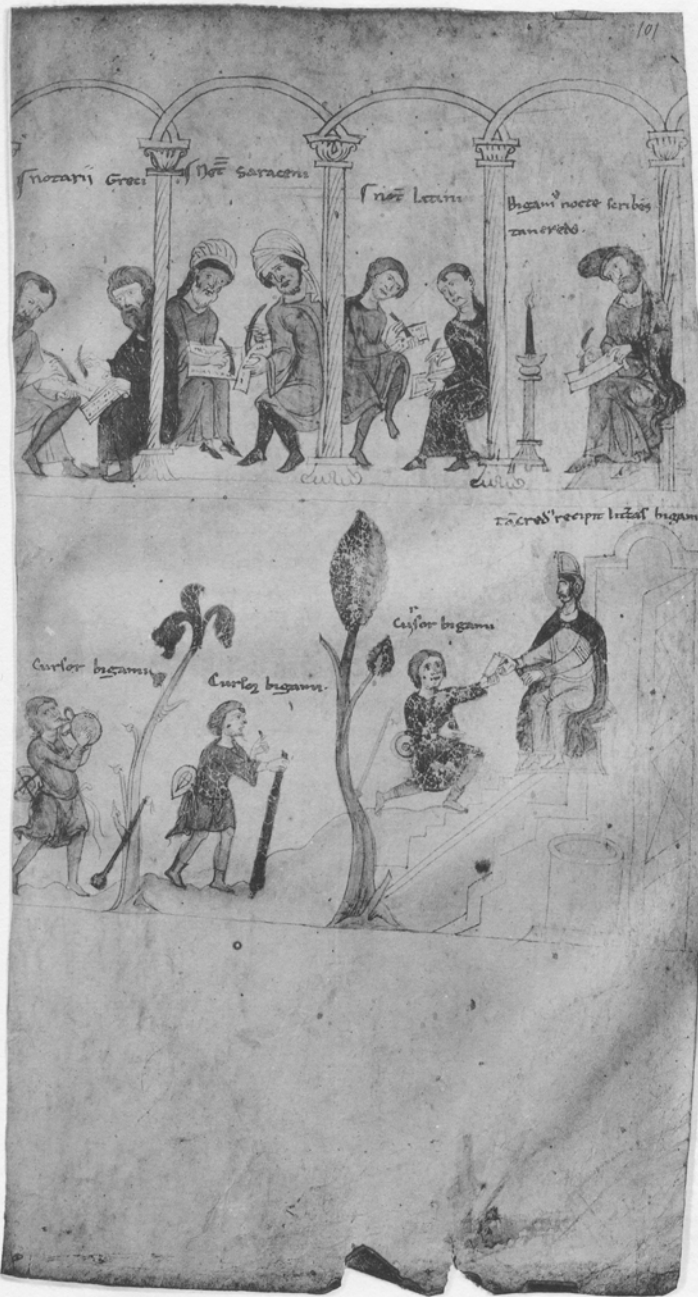 101
notarii Greci
Not Saraceni
not Latini
Bigam⁹ nocte scribēs
tancredo.
tācred⁹ recipit lit̄tas bigami
Cursor bigami
Cursor bigami
Cursoꝛ bigami.